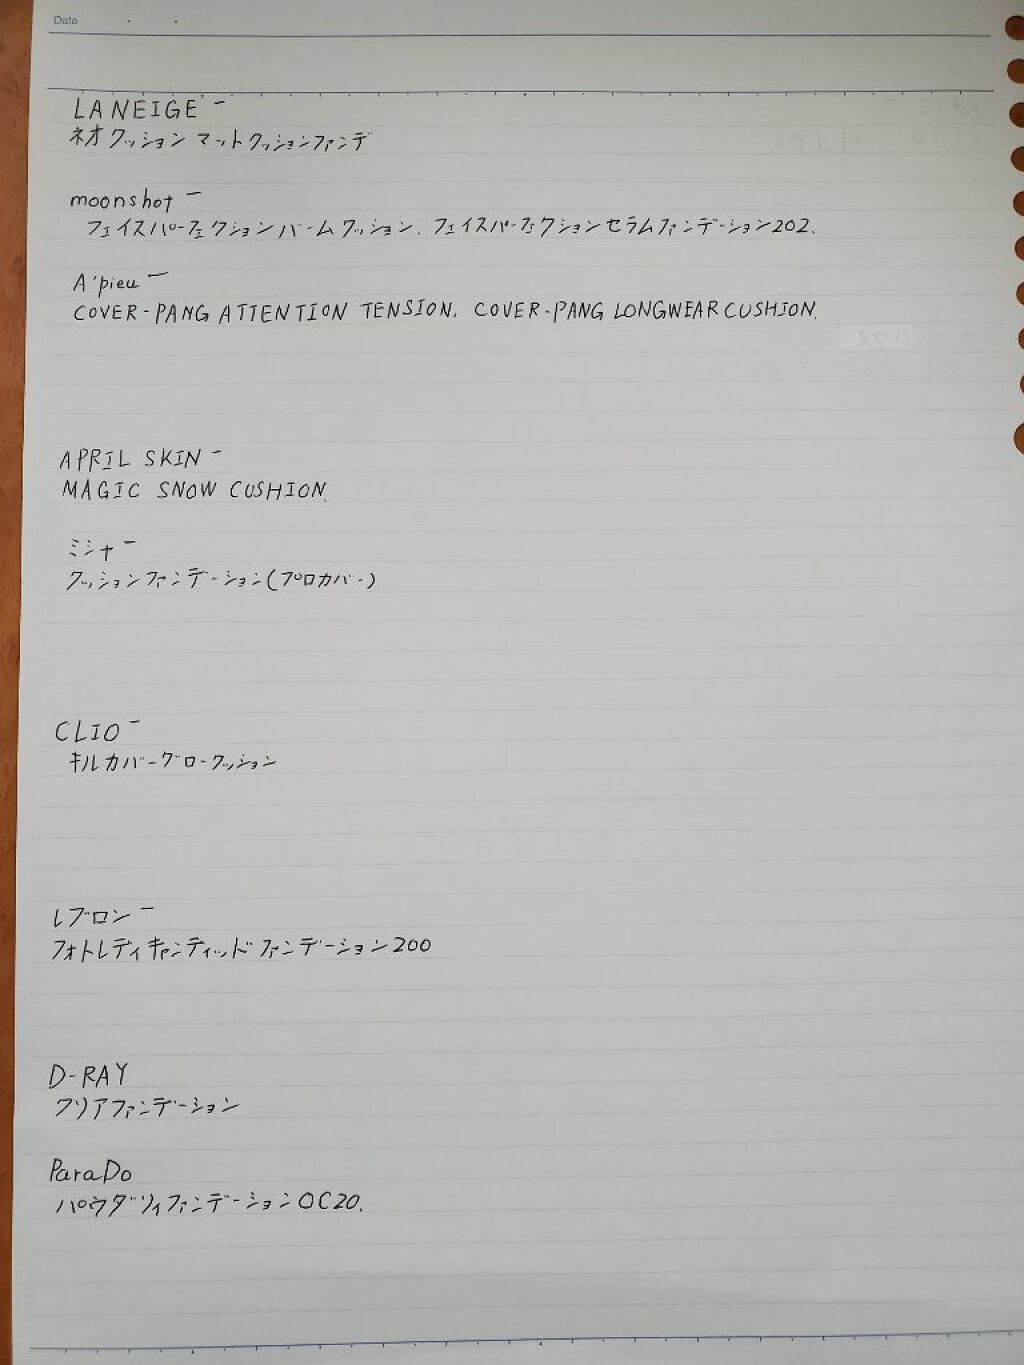 Date
LANEIGE ー
ネオクッション マットクッションファンデ
moonshot ー
フェイスパーフェクションバームクッション、フェイスパーフェクションセラムファンデーション202、
A'pieu ー
COVER-PANG ATTENTION TENSION. COVER-PANG LONGWEAR CUSHION.
APRIL SKIN ー
MAGIC SNOW CUSHION.
ミシャ ー
クッションファンデーション(プロカバー)
CLIO ー
キルカバーグロークッション
レブロン ー
フォトレディキャンディッドファンデーション200
D-RAY
クリアファンデーション
ParaDo
パウダリィファンデーションOC20.